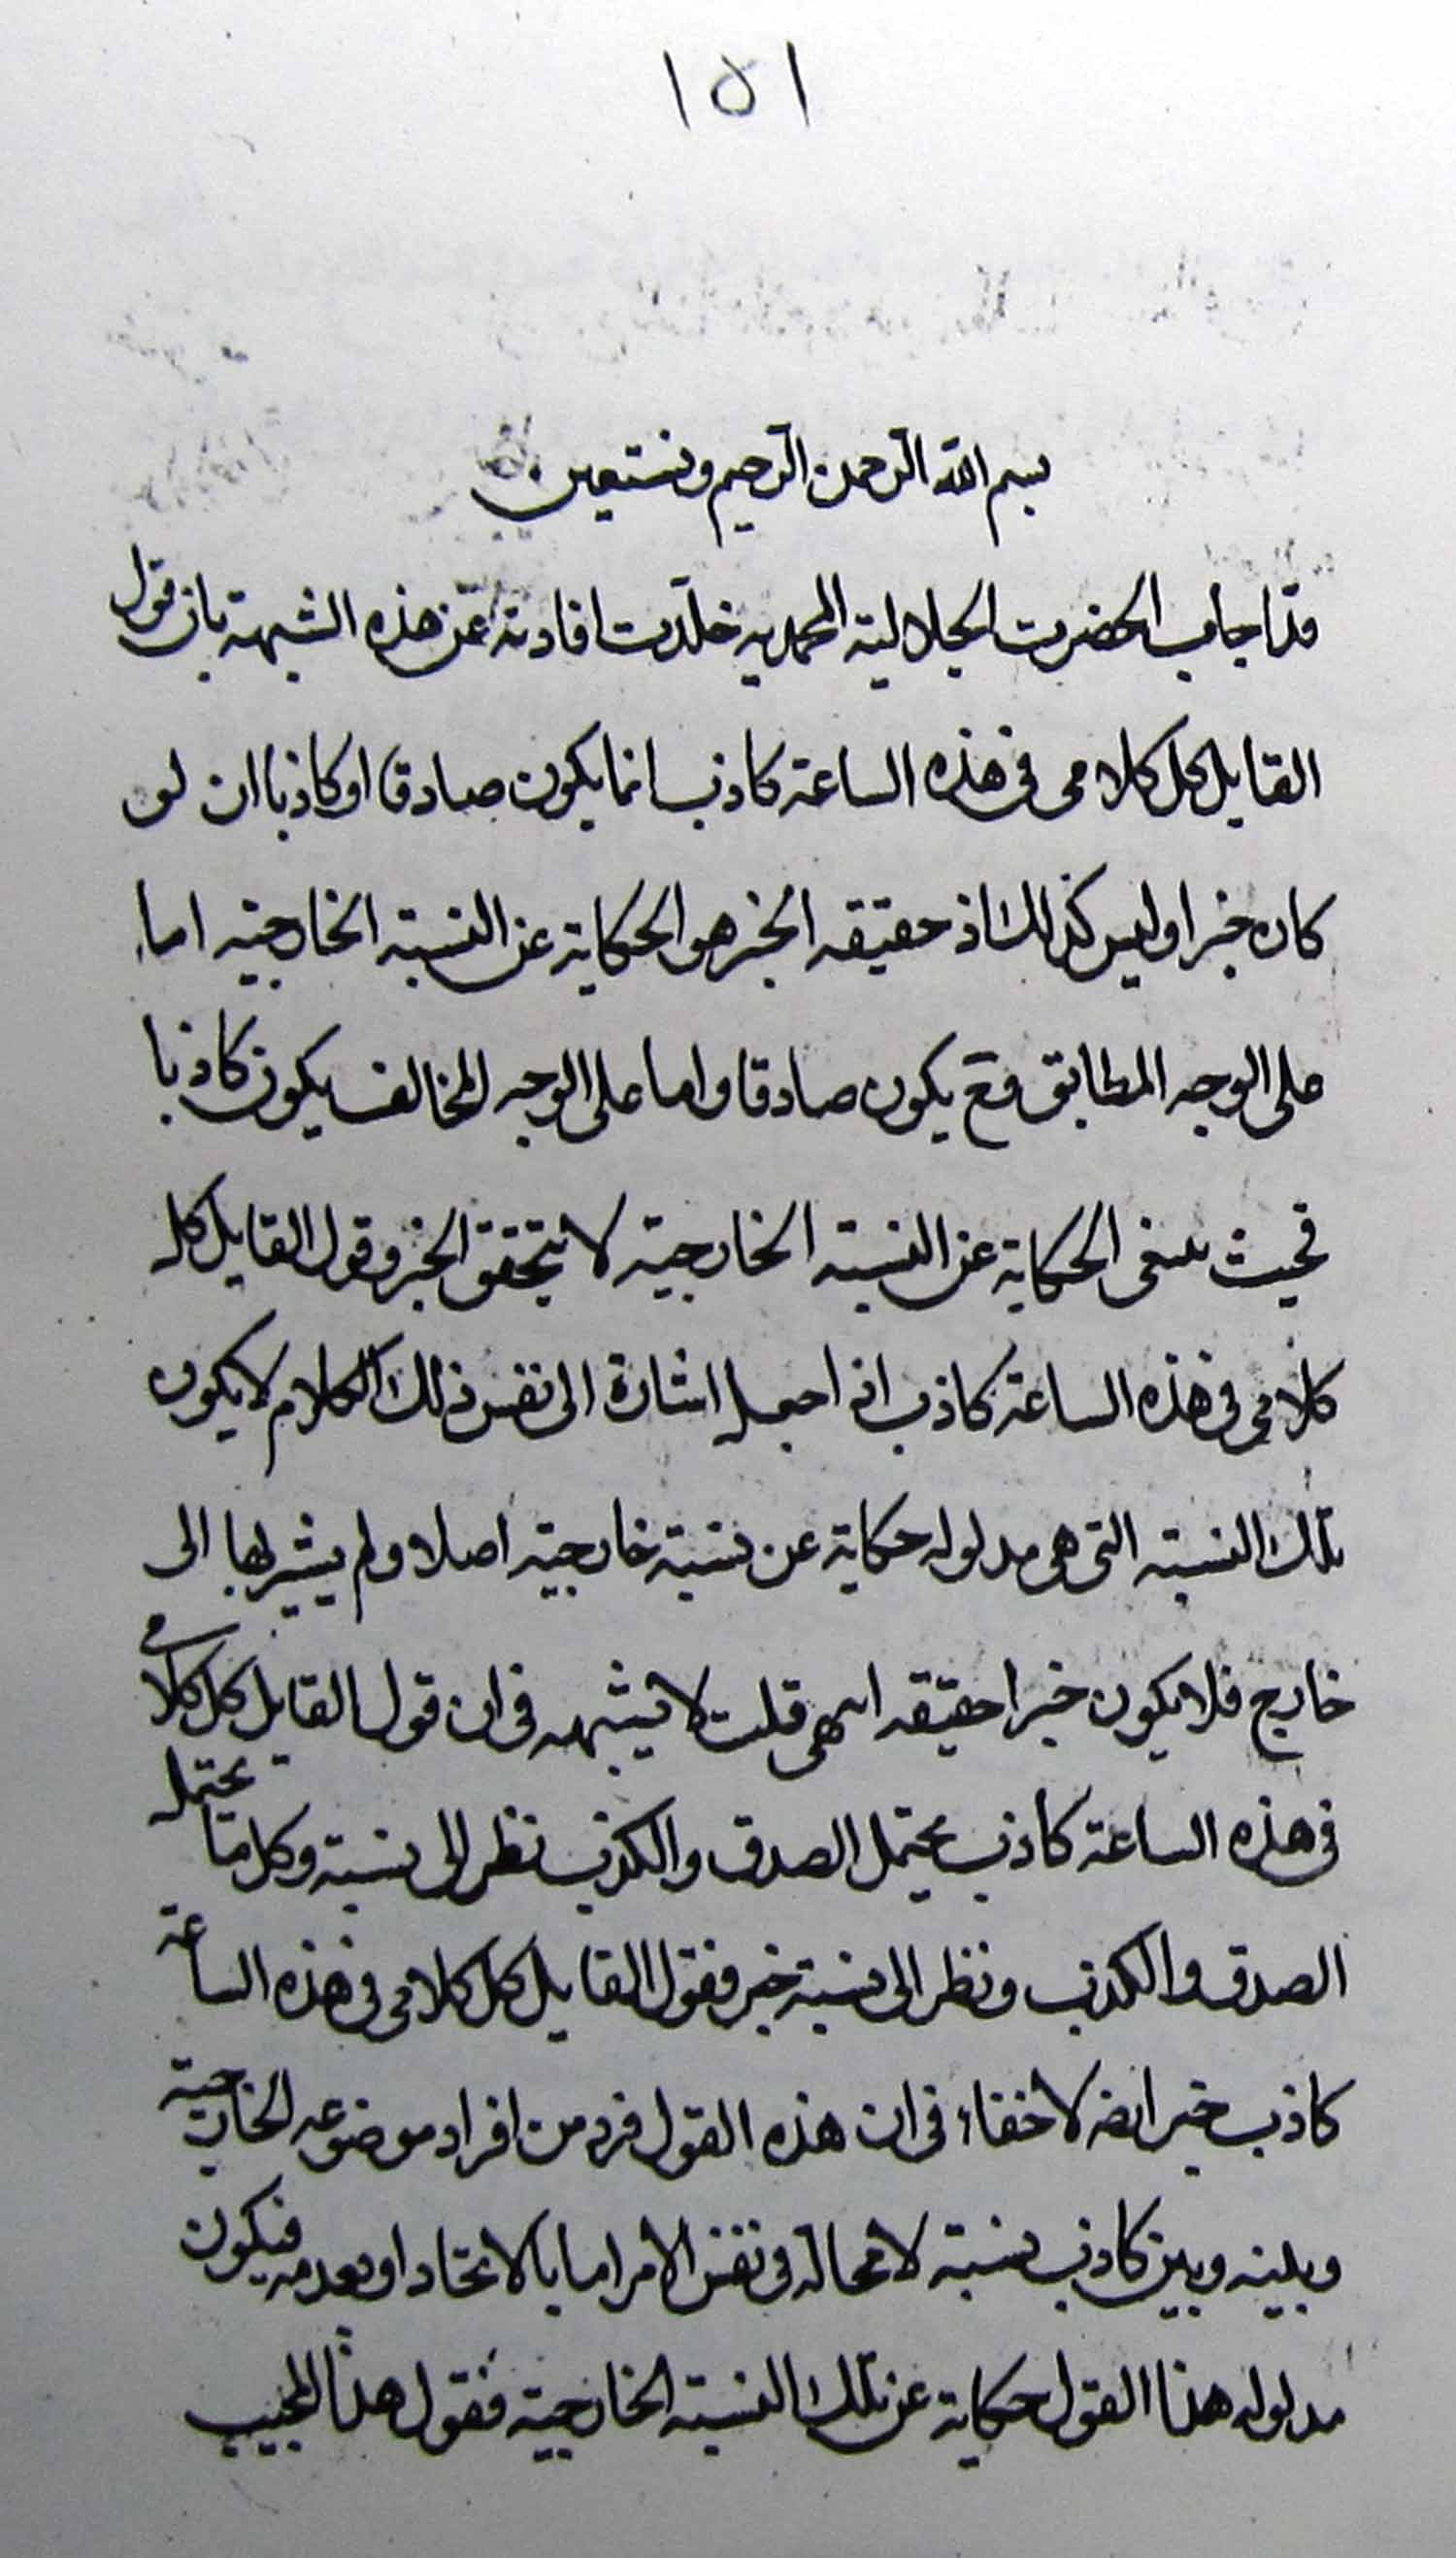 ١٥١
بسم الله الرحمن الرحيم ونستعين
قد اجاب الحضرت الجلالية المحمديه خلدت افادته عن هذه الشبهة بان قول
القايل كل كلامى فى هذه الساعة كاذب انما يكون صادقا او كاذبا ان لو
كان خبرا وليس كذلك اذ حقيقه الخبر هو الحكاية عن النسبته الخارجية اما
على الوجه المطابق فح يكون صادقا واما على الوجه المخالف يكون كاذبا
فحيث ينتفى الحكاية عن النسبته الخارجية لا يتحقق الخبر وقول القايل كل
كلامى فى هذه الساعة كاذب اذا جعل اشارة الى نفس ذلك الكلام لا يكون
تلك النسبته التى هى مدلوله حكاية عن نسبة خارجية اصلا ولم يشير بها الى
خارج فلا يكون خبرا حقيقه انتهى قلت لا يشبهه فى ان قول القايل كل كلامى
فى هذه الساعة كاذب يحتمل الصدق والكذب نظر الى نسبة وكل ما يحتمل
الصدق والكذب ونظر الى نسبة خبر فقول القايل كل كلامى فى هذه الساعة
كاذب خبر ايضا لا خفاء فى ان هذه القول فرد من افراد موضوعه الخارجية
وبينه وبين كاذب نسبة لا محالة فى نفس الامر اما بالاتحاد او بعدمه فيكون
مدلوله هذا القول حكاية عن تلك النسبته الخارجية فقول هذا المجيب